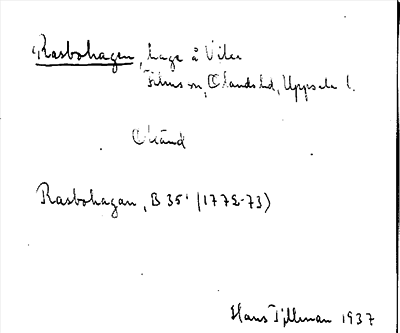 Rasbohagen, hage å Viler
Films sn, Olands hd, Uppsala l.
Okänd
Rasbohagan, B 35¹ (1772-73)
Hans Tillman 1937